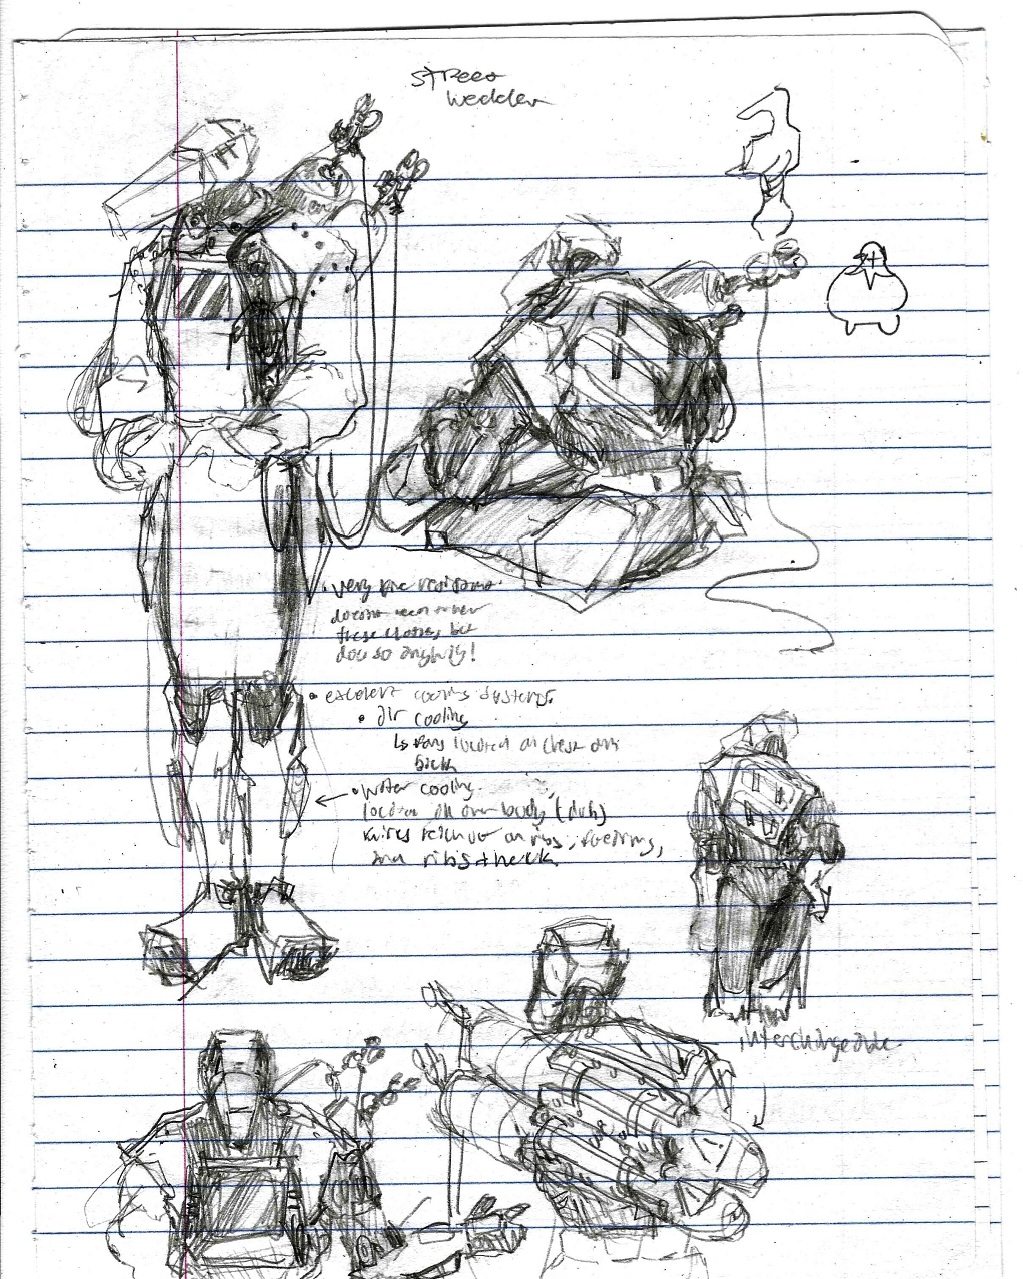 Street
Welder
• very fire resistant
doesn't need to wear
these clothes, but
does so anyway!
• excelent cooling systems
• air cooling
↳ fans located on chest and
back
• water cooling
located all over body (duh)
on ribs, forearms,
and ribs + neck
interchangeable